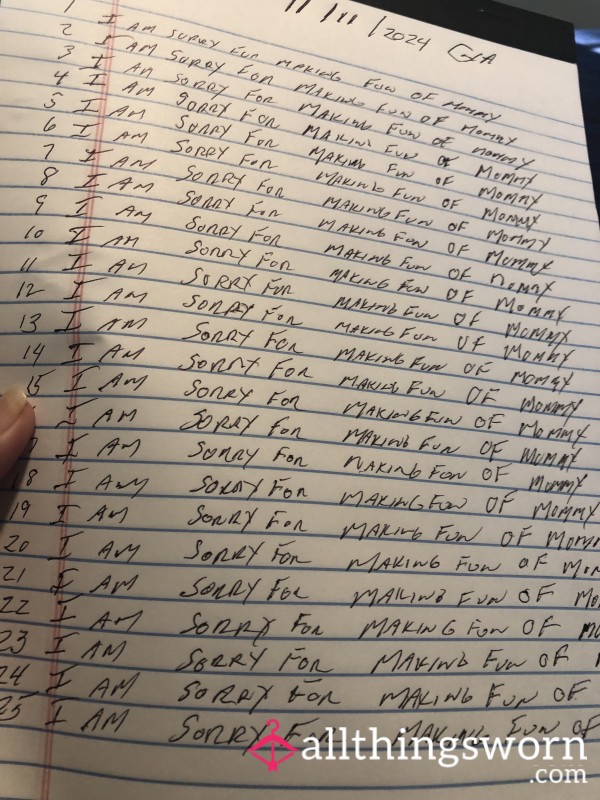 11/11/2024
1 I AM SORRY FOR MAKING FUN OF MOMMY
2 I AM SORRY FOR MAKING FUN OF MOMMY
3 I AM SORRY FOR MAKING FUN OF MOMMY
4 I AM SORRY FOR MAKING FUN OF MOMMY
5 I AM SORRY FOR MAKING FUN OF MOMMY
6 I AM SORRY FOR MAKING FUN OF MOMMY
7 I AM SORRY FOR MAKING FUN OF MOMMY
8 I AM SORRY FOR MAKING FUN OF MOMMY
9 I AM SORRY FOR MAKING FUN OF MOMMY
10 I AM SORRY FOR MAKING FUN OF MOMMY
11 I AM SORRY FOR MAKING FUN OF MOMMY
12 I AM SORRY FOR MAKING FUN OF MOMMY
13 I AM SORRY FOR MAKING FUN OF MOMMY
14 I AM SORRY FOR MAKING FUN OF MOMMY
15 I AM SORRY FOR MAKING FUN OF MOMMY
I AM SORRY FOR MAKING FUN OF MOMMY
7 I AM SORRY FOR MAKING FUN OF MOMMY
18 I AM SORRY FOR MAKING FUN OF MOMMY
19 I AM SORRY FOR MAKING FUN OF MOMM
20 I AM SORRY FOR MAKING FUN OF MOM
21 I AM SORRY FOR MAKING FUN OF MO
22 I AM SORRY FOR MAKING FUN OF M
23 I AM SORRY FOR MAKING FUN OF
24 I AM SORRY FOR MAKING FUN OF
25 I AM SORRY FOR MAKING FUN OF
allthingsworn
.com